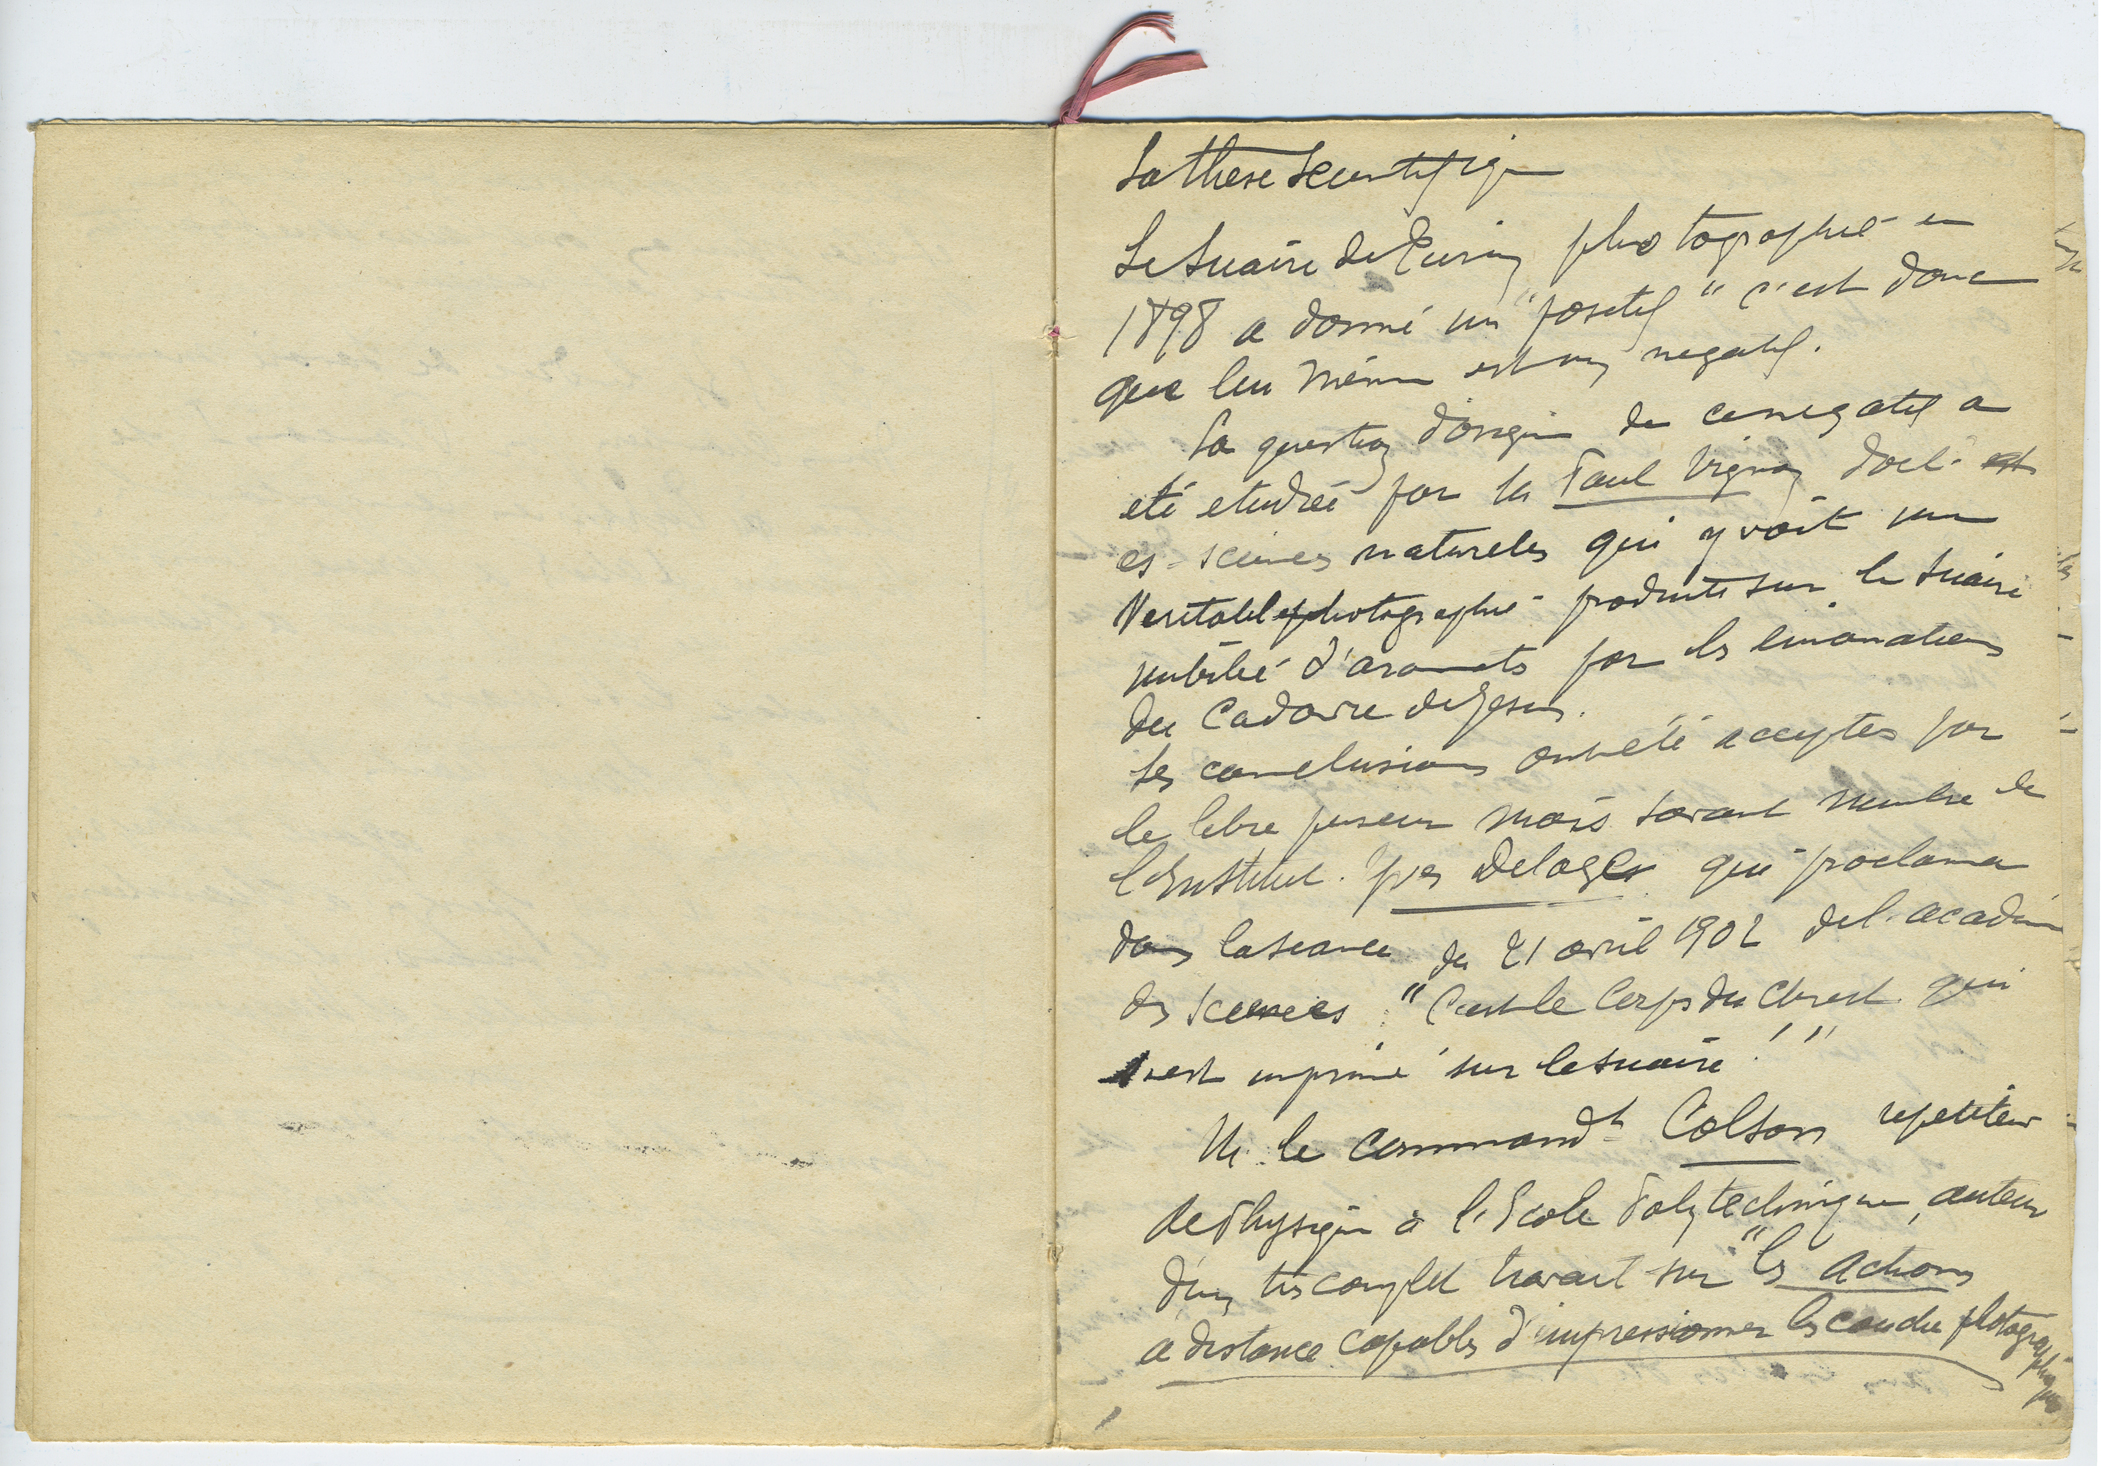 La these scientifique
Le Suaire de Turin photographié en
1898 a donné un "positif" c'est donc
que lui même est un negatif.
La question d'origine de ce negatif a
eté etudiée par M Paul Vignon doct.
es-sciences naturelles qui y voit une
Veritable photographie produite sur le Suaire
imbibé d'aromats par les emanations
du Cadavre de Jesus.
Ses conclusions ont été acceptes par
le libre penseur mais savant membre de
l'Institut. Yves Delages qui proclama
dans la seance du 21 avril 1902 de l'academie
des Sciences "C'est le Corps du Christ qui
s'est imprimé sur le suaire!"
M. le commandt Colson repetiteur
de Physique à l'Ecole Polytechnique, auteur
d'un tres complet travail sur "les actions
a distance capables d'impressionner les couches photographiques